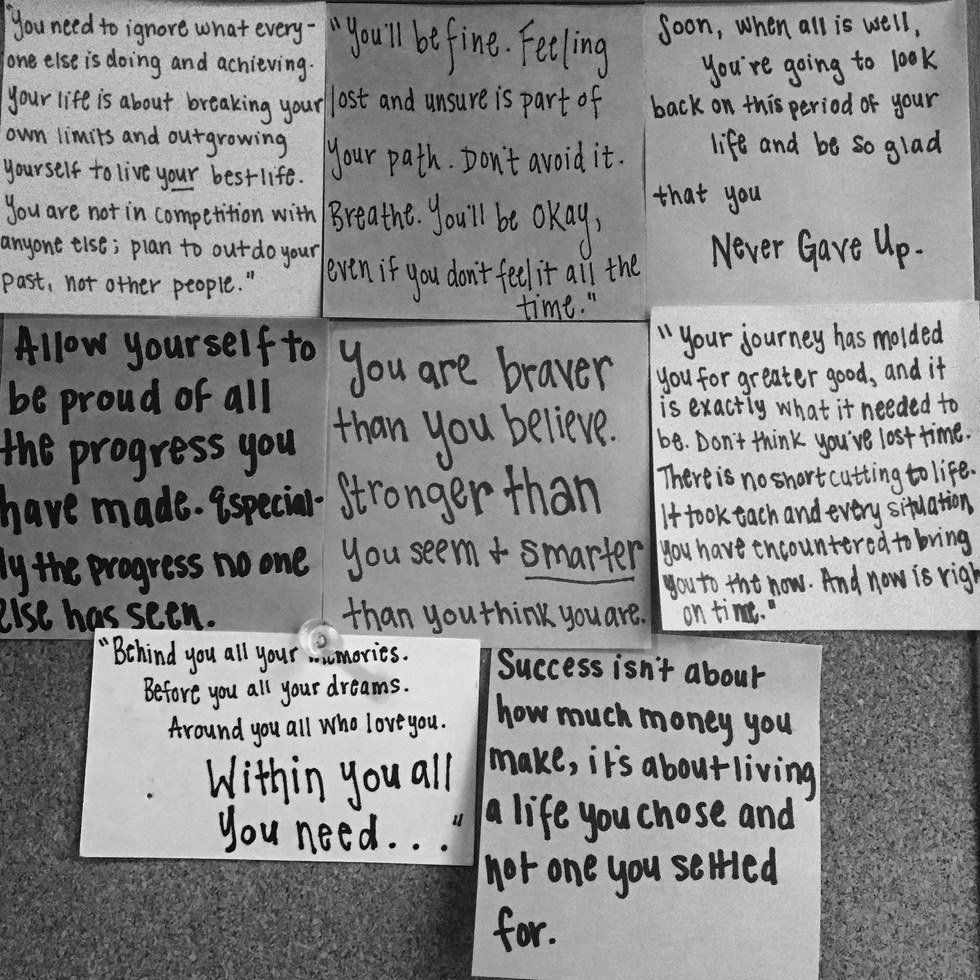 "You need to ignore what every-
one else is doing and achieving.
Your life is about breaking your
own limits and outgrowing
yourself to live your best life.
You are not in competition with
anyone else; plan to outdo your
past, not other people."
"You'll be fine. Feeling
lost and unsure is part of
your path. Don't avoid it.
Breathe. You'll be okay,
even if you don't feel it all the
time."
Soon, when all is well,
you're going to look
back on this period of your
life and be so glad
that you
Never Gave Up.
Allow yourself to
be proud of all
the progress you
have made. Especial-
ly the progress no one
else has seen.
You are braver
than you believe.
Stronger than
you seem + smarter
than you think you are.
"Your journey has molded
you for greater good, and it
is exactly what it needed to
be. Don't think you've lost time.
There is no short cutting to life.
It took each and every situation
you have encountered to bring
you to the now. And now is righ
on time."
"Behind you all your memories.
Before you all your dreams.
Around you all who love you.
Within you all
you need..."
Success isn't about
how much money you
make, it's about living
a life you chose and
not one you settled
for.